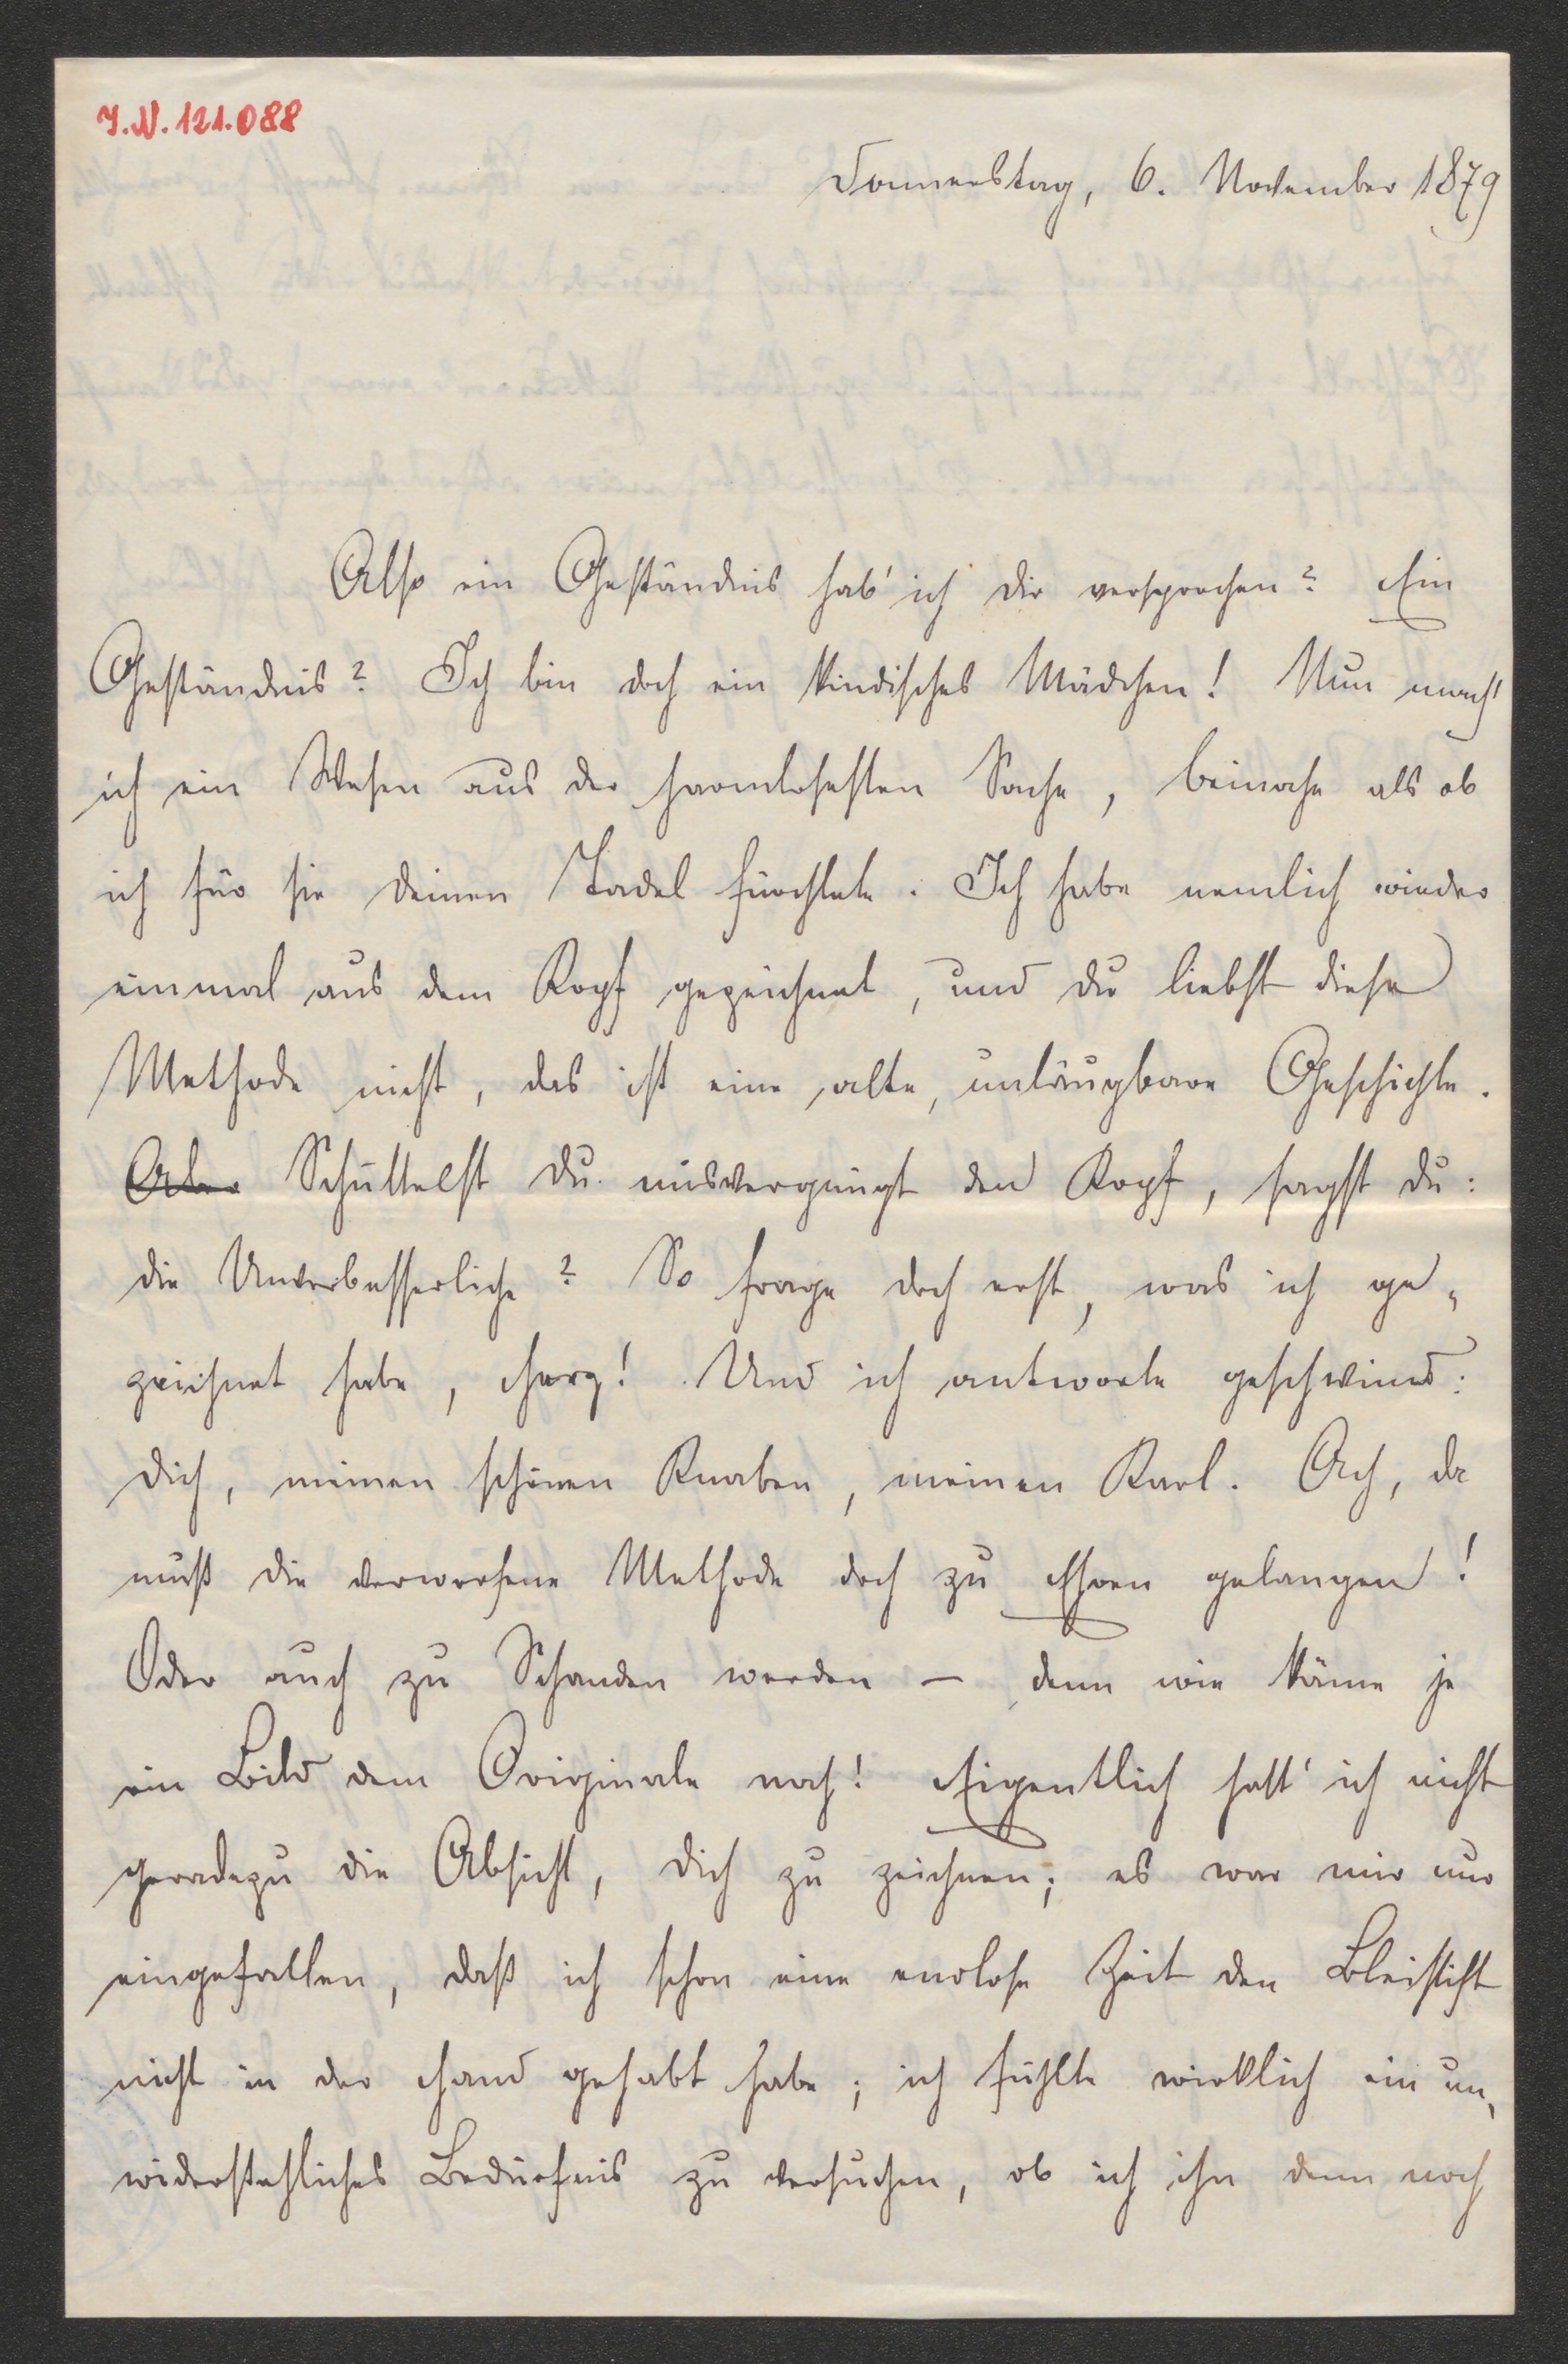 I.N. 121.088
Donnerstag, 6. November 1879
Also ein Geständnis hab' ich dir versprochen? Ein
Geständnis? Ich bin doch ein kindisches Mädchen! Nun mach'
ich ein Wesen aus der harmlosesten Sache, beinahe als ob
ich für sie deinen Tadel fürchtete. Ich habe nemlich wieder
einmal aus dem Kopf gezeichnet, und du liebst diese
Methode nicht, das ist eine alte, unläugbare Geschichte.
Aber Schüttelst du misvergnügt den Kopf, sagst du:
die Unverbesserliche? So frage doch erst, was ich ge-
zeichnet habe, Herz! Und ich antworte geschwind:
dich, meinen schönen Knaben, meinen Karl. Ach, da
muß die verworfene Methode doch zu Ehren gelangen!
Oder auch zu Schanden werden – denn wie käme je
ein Bild dem Originale nach! Eigentlich hatt' ich nicht
geradezu die Absicht, dich zu zeichnen; es war mir nur
eingefallen, daß ich schon eine endlose Zeit den Bleistift
nicht in der Hand gehabt habe; ich fühlte wirklich ein un-
widerstehliches Bedürfnis zu versuchen, ob ich ihn denn noch